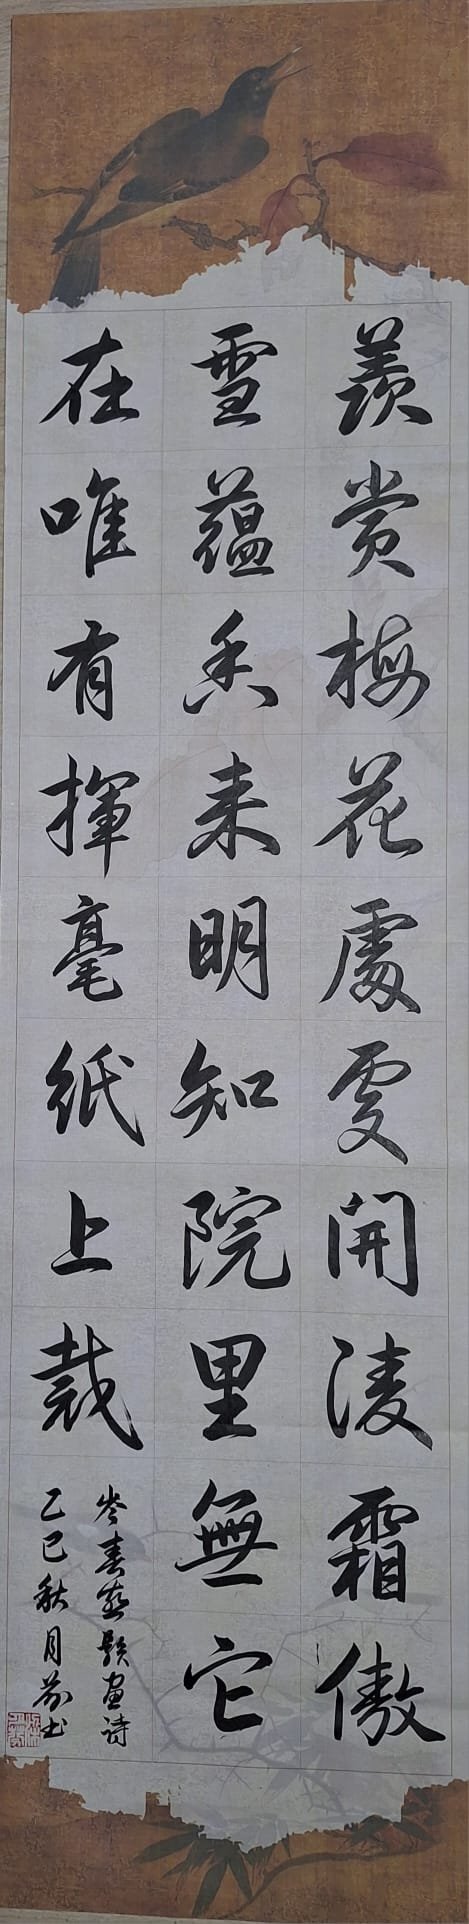 羨赏梅花處處開淩霜傲
雪蘊香来明知院里無它
在唯有揮毫紙上栽
岑春燕題画詩
乙巳秋月书